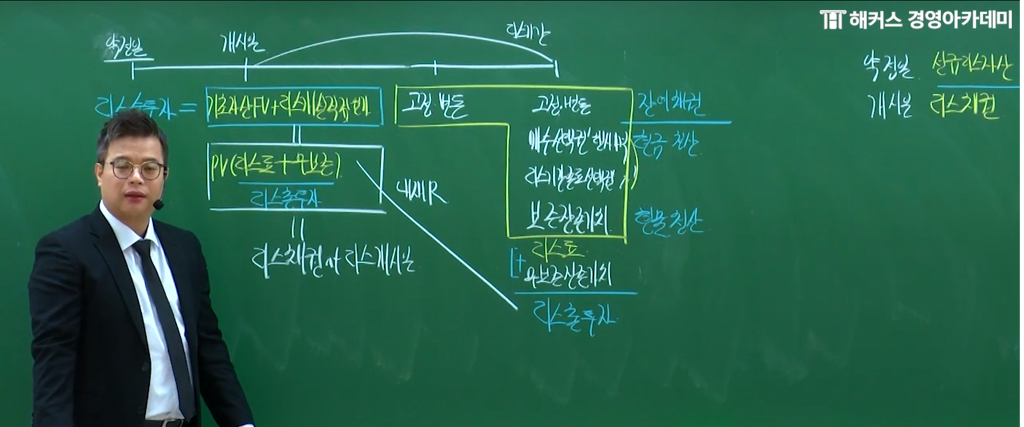 해커스 경영아카데미
약정일 개시일 리스기간
약정일 선급리스자산
개시일 리스채권
리스순투자 = 기초자산FV + 리스개설직접원가
고정·변동
고정·변동 잔여채권
현금 정산
PV(리스료 + 무보잔)
리스총투자
내재R
보증잔존가치 현물 정산
리스채권 at 리스개시일
리스료
[+ 무보증잔존가치
리스총투자